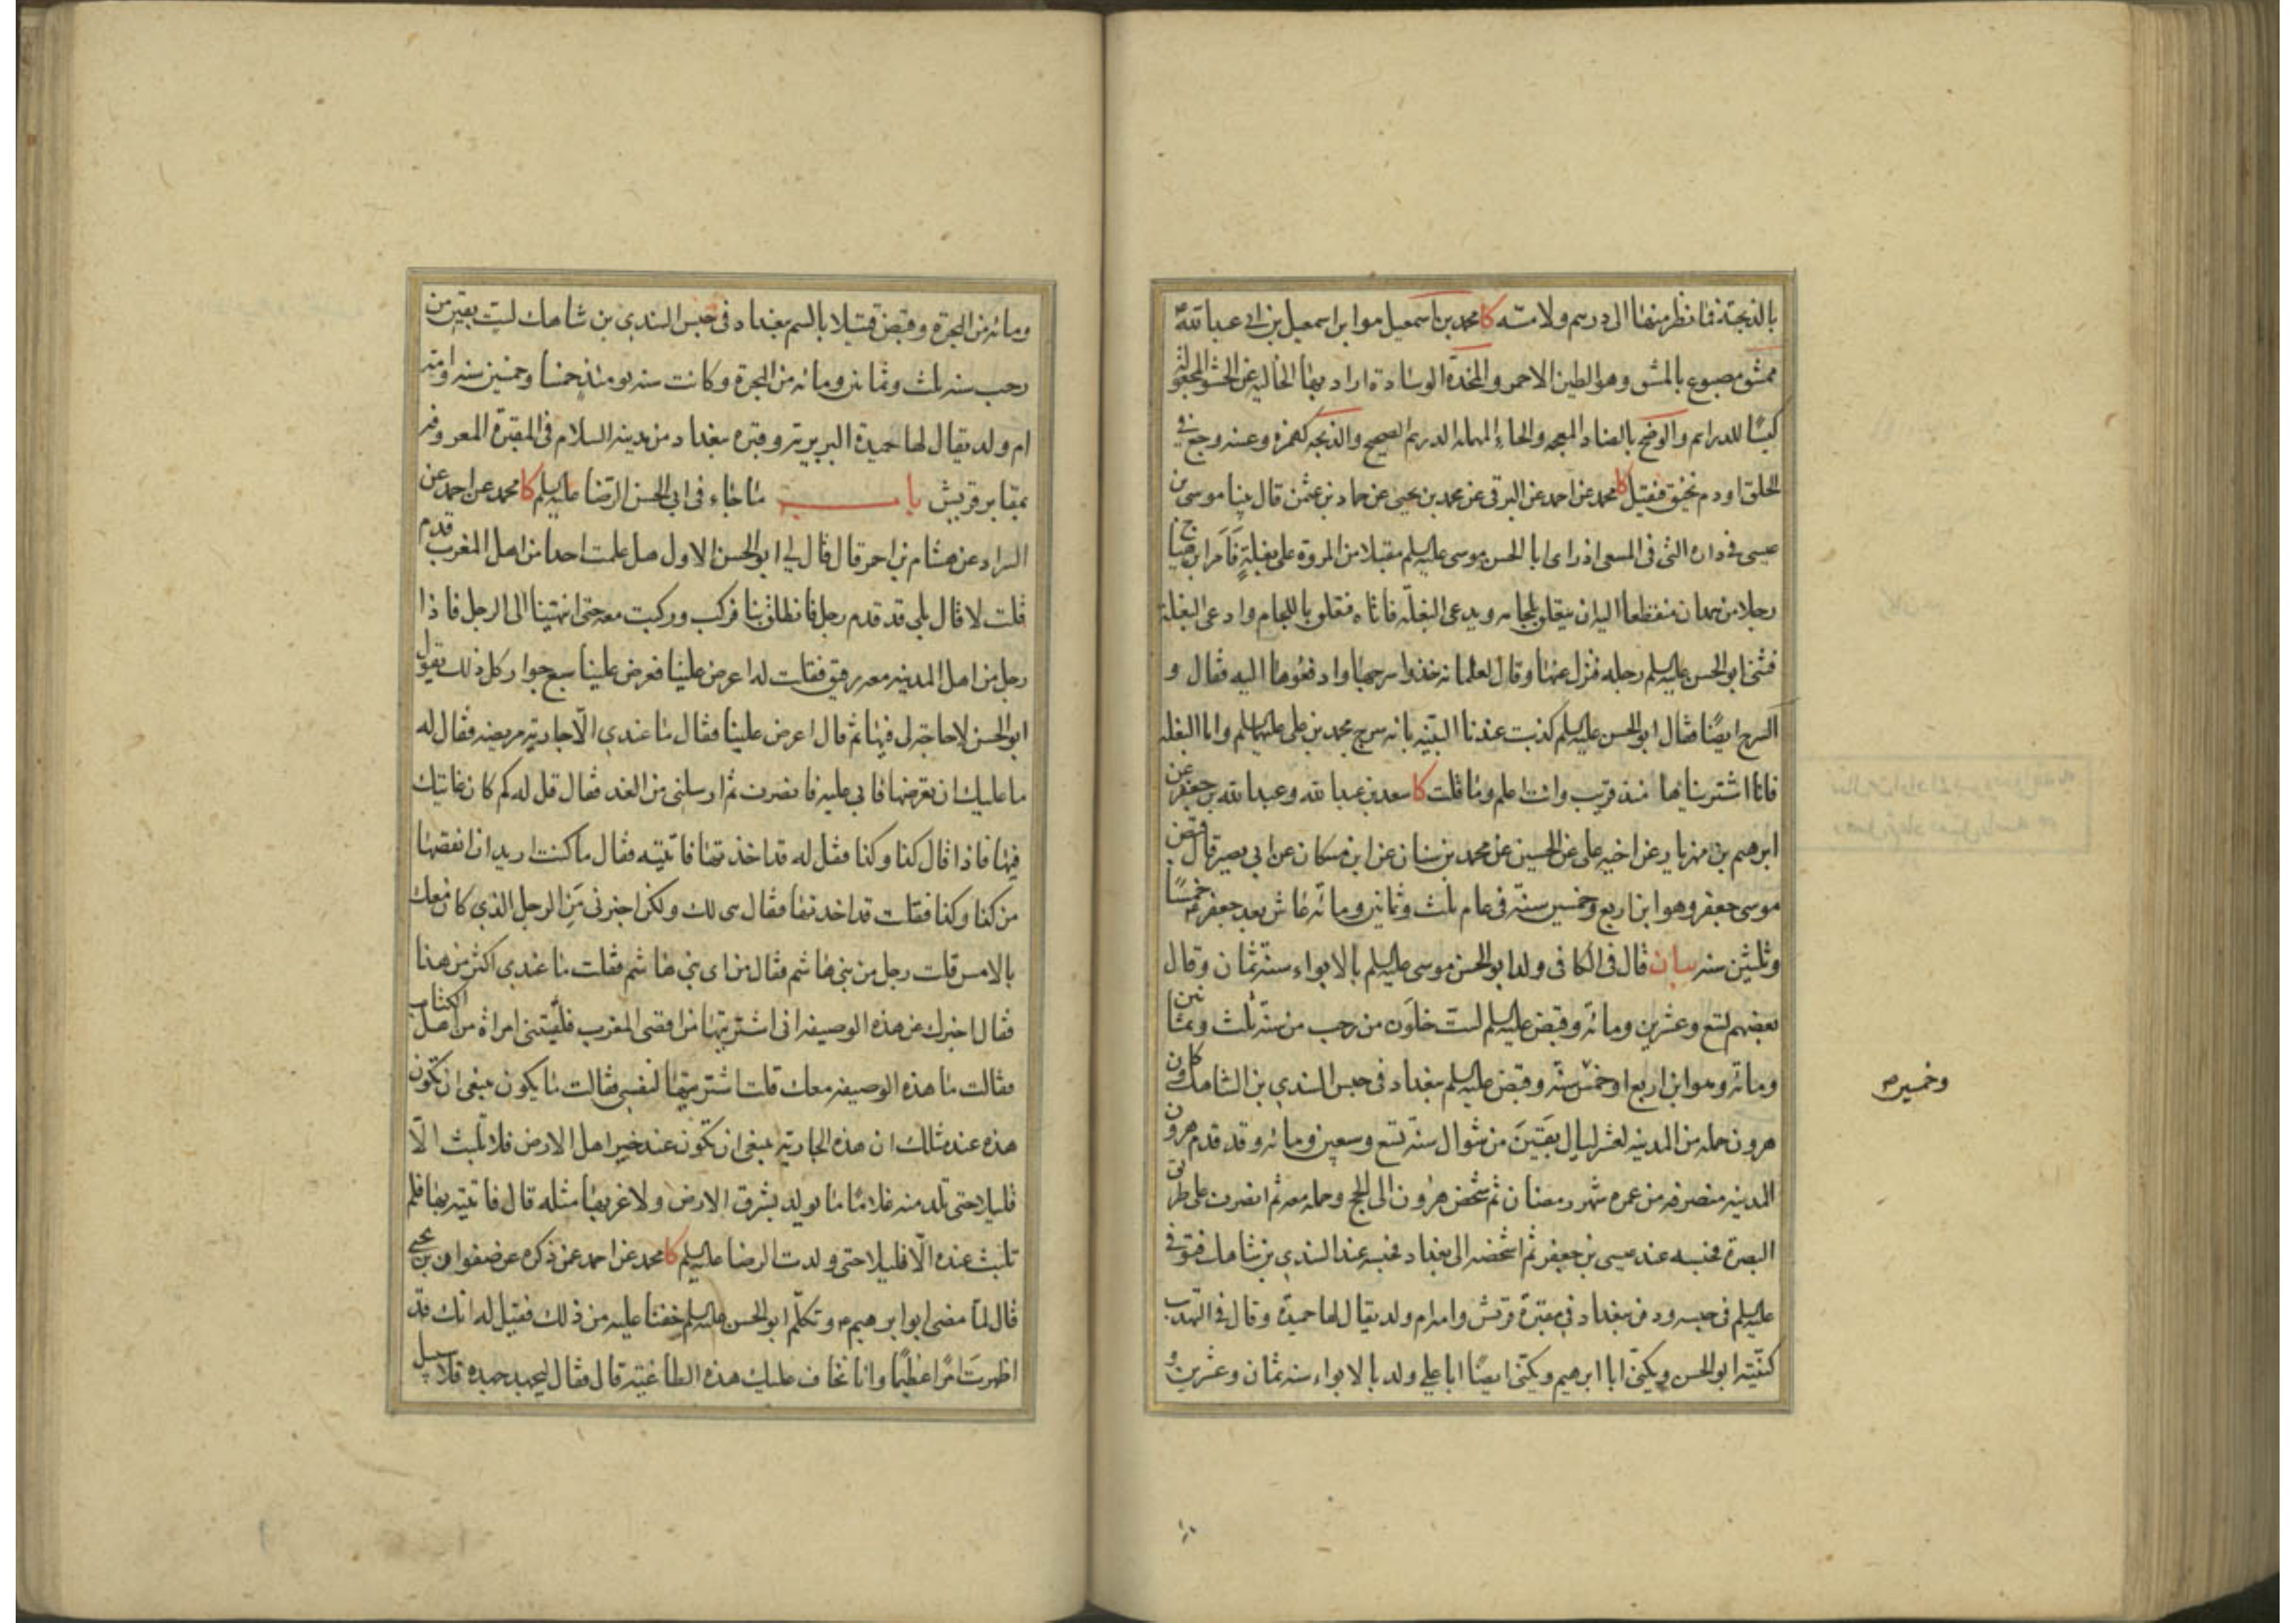 بالذبحة فانظر منها الى درهم ولا مته كا محمد بن اسمعيل هو ابن اسمعيل بن ابى عبد الله
ممشق مصبوغ بالمشق وهو الطين الاحمر والمخدة الوسادة اراد بها الخالية عن الحشو المجعولة
كيسًا للدراهم والوضح بالضاد المعجمه والحاء المهملة الدرهم الصحيح والذبحه كهمزه وعنبه وجع فى
الحلق او دم يخنق فيقتل كا محمد عن احمد عن البرقى عن محمد بن يحيى عن حماد بن عثمن قال بينا موسى بن
عيسى فى داره التى فى المسعى اذ راى ابا الحسن موسى عليه السلم مقبلا من المروة على بغلةٍ فَاَمَرَ ابن هياج
رجلا من همدان منقطعا اليه ان يتعلق بلجامه ويدعى البغلة فاتاه فتعلق باللجام وادعى البغلة
فثنى ابو الحسن عليه السلم رجله فنزل عنها وقال لغلمانه خذوا سرجها وادفعوها اليه فقال و
السرج ايضًا فقال ابو الحسن عليه السلم كذبت عندنا البينه بانه سرج محمد بن على عليهما السلم واما البغله
فانا اشتريناها منذ قريب وانت اعلم وما قلت كا سعد بن عبد الله وعبد الله بن جعفر عن
ابرهيم بن مهزيار عن اخيه على عن الحسين عن محمد بن سنان عن ابن مسكان عن ابى بصير قال قبض
موسى جعفر وهو ابن اربع وخمسين سنة فى عام ثلث وثمانين ومائه عاش بعد جعفر ع خمسًا
وثلثين سنه بيان قال فى الكافى ولد ابو الحسن موسى عليه السلم بالابواء سنة ثمان وقال
بعضهم تسع وعشرين ومائه وقبض عليه السلم لست خلَون من رجب من سنة ثلث وثمانين
ومائه وهو ابن اربع او خمس سنه وقبض عليه السلم ببغداد فى حبس السندي بن الشاهك وكان
وخمسين ص
هرون حمله من المدينه لعشر ليال بقينَ من شوال سنة تسع وسبعين ومائه وقد قدم هرون
المدينه منصرفه من عمره شهر رمضان ثم شخص هرون الى الحج وحمله معه ثم انصرف على طريق
البصرة فحبسه عند عيسى بن جعفر ثم اشخصه الى بغداد فحبسه عند السندي بن شاهك فتوفى
عليه السلم فى حبسه ودفن ببغداد فى مقبرة قريش وامه ام ولد يقال لها حميدة وقال فى التهذيب
كنيته ابو الحسن ويكنى ابا ابرهيم ويكنى ايضًا ابا علي ولد بالابواء سنه ثمان وعشرين و
ومائه من الهجرة وقبض قتيلا بالسم ببغداد فى حبس السندي بن شاهك لست بقين من
رجب سنه ثلث وثمانين ومائه من الهجرة وكانت سنه يومئذ خمسا وخمسين سنه وامه
ام ولد يقال لها حميدة البربرية وقبره ببغداد من مدينه السلام فى المقبرة المعروفه
بمقابر قريش باب ما جاء فى ابى الحسن الرضا عليه السلم كا محمد عن احمد عن
السراد عن هشام بن احمر قال قال لي ابو الحسن الاول هل علمت احدا من اهل المغرب قدم
قلت لا قال بلى قد قدم رجل فانطلق بنا فركب وركبت معه حتى انتهينا الى الرجل فاذا
رجل من اهل المدينه معه رقيق فقلت له اعرض علينا فعرض علينا سبع جوار كل ذلك يقول
ابو الحسن لا حاجة لى فيها ثم قال اعرض علينا فقال ما عندي الّا جارية مريضه فقال له
ما عليك ان تعرضها فابى عليه فانصرف ثم ارسلنى من الغد فقال قل له كم كان غايتك
فيها فاذا قال كذا وكذا فقل له قد اخذتها فاتيته فقال ما كنت اريد ان انقصها
من كذا وكذا فقلت قد اخذتها فقال هى لك ولكن اخبرنى مَنِ الرجل الذي كان معك
بالامس قلت رجل من بنى هاشم فقال من اى بنى هاشم فقلت ما عندي اكثر من هذا
فقال اخبرك عن هذه الوصيفه انى اشتريتها من اقصى المغرب فلقيتنى امراة من اهل الكتاب
فقالت ما هذه الوصيفه معك قلت اشتريتها لنفسى فقالت ما يكون ينبغى ان تكون
هذه عند مثلك ان هذه الجارية ينبغى ان تكون عند خير اهل الارض فلا تلبث الّا
قليلا حتى تلد منه غلامًا ما يولد بشرق الارض ولا غربها مثله قال فاتيته بها فلم
تلبث عنده الّا قليلا حتى ولدت الرضا عليه السلم كا محمد عن احمد عمن ذكره عن صفوان بن يحيى
قال لمّا مضى ابو ابرهيم ع وتكلّم ابو الحسن عليه السلم خفنا عليه من ذلك فقيل له انك قد
اظهرتَ امرًا عظيمًا وانا نخاف عليك هذه الطاغية قال فقال ليجهد جهده فلا سبيل